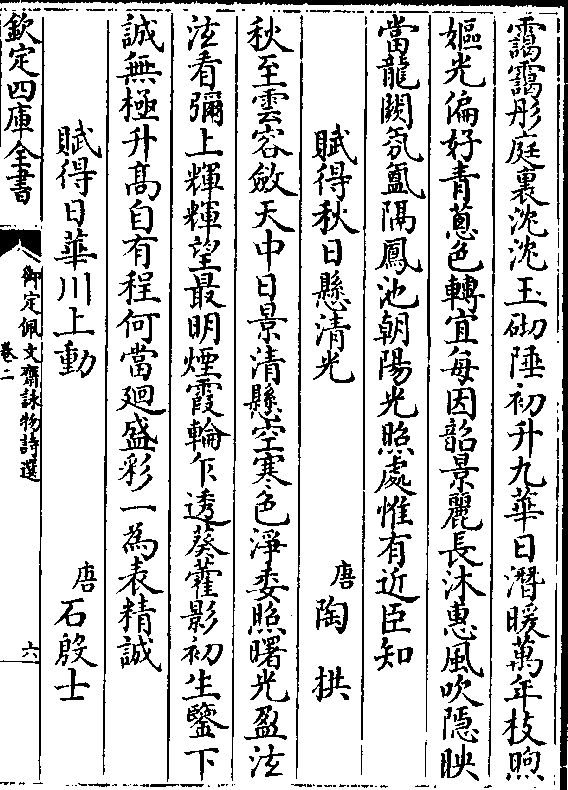 靄靄彤庭裏沈沈玉砌陲初升九華日潛暖萬年枝煦
嫗光偏好青蔥色轉宜每因韶景麗長沐惠風吹隱映
當龍闕氛氳隔鳳池朝陽光照處惟有近臣知
賦得秋日懸清光　唐　陶　拱
秋至雲容斂天中日景清懸空寒色淨委照曙光盈泫
泫看彌上輝輝望最明煙霞輪乍透葵藿影初生鑒下
誠無極升高自有程何當廻盛彩一為表精誠
賦得日華川上動　唐　石殷士
欽定四庫全書
御定佩文齋詠物詩選
卷二
六